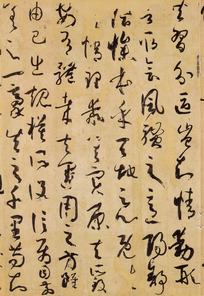 共習分區豈知情動形
言取會風騷之意陽舒
陰慘本乎天地之心既失
其情理乖其實原夫所致
安有體哉夫運用之方雖
由己出規模所設信屬目前
差之一豪失之千里苟知其